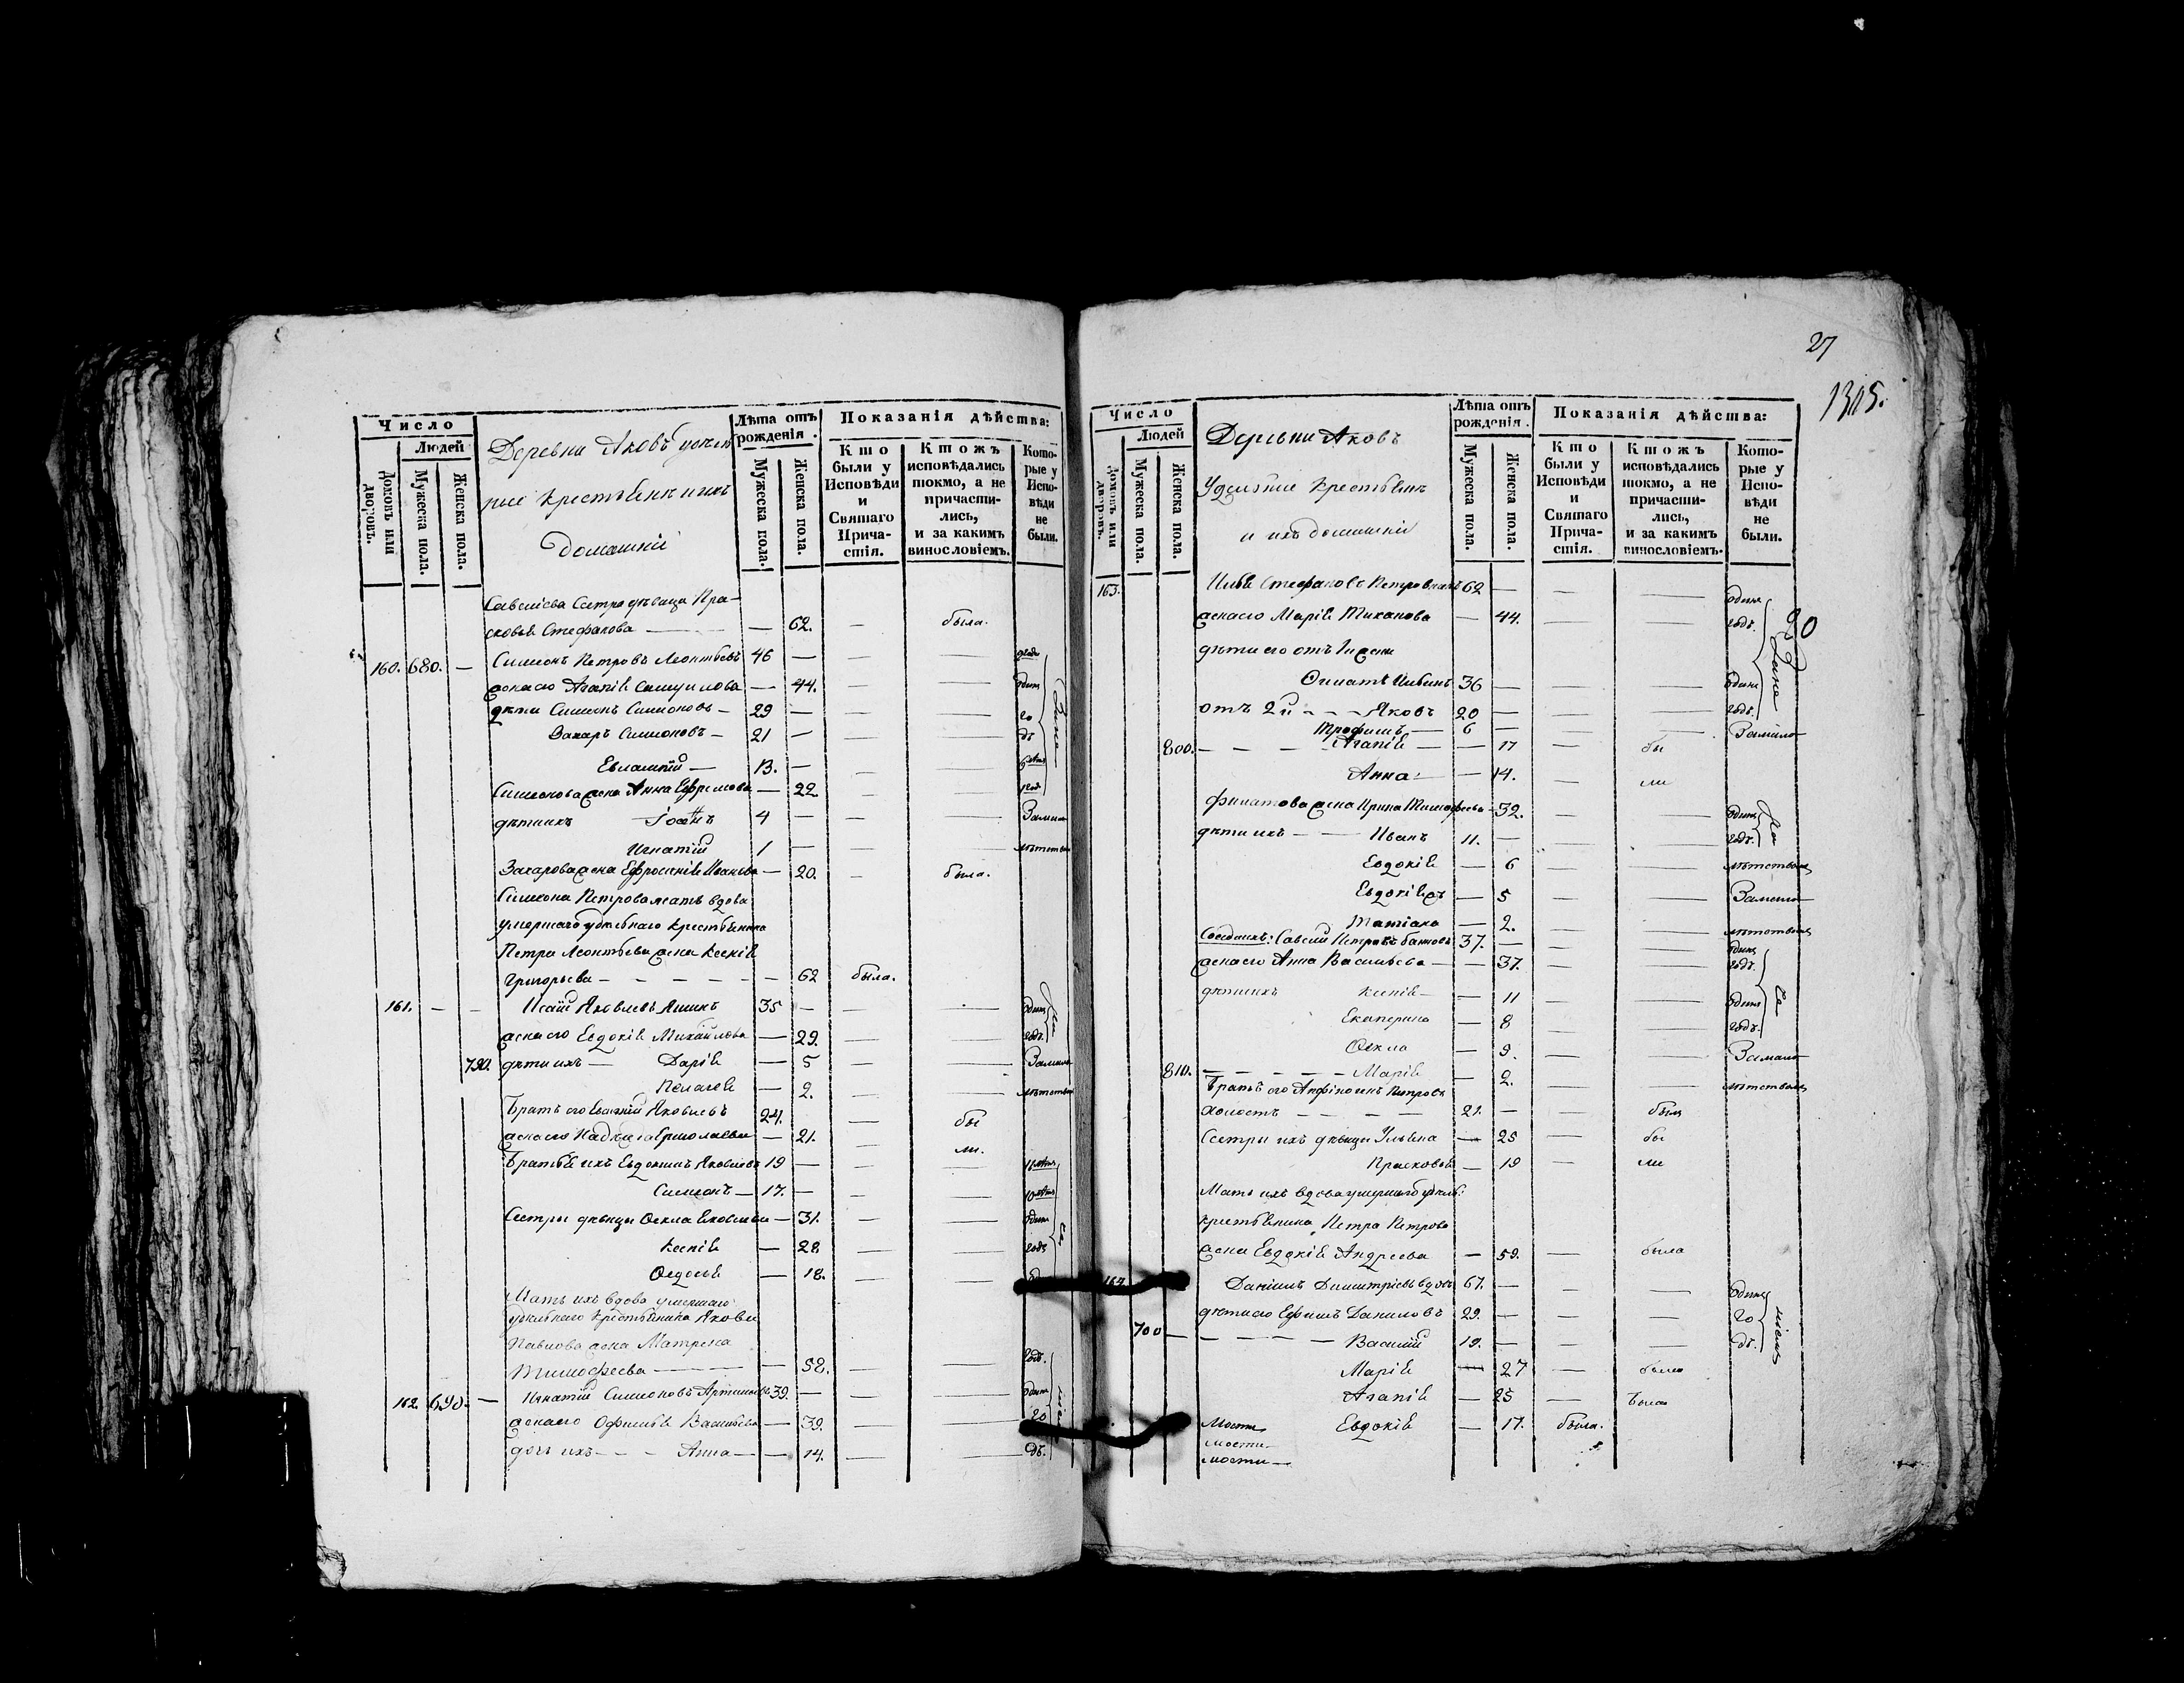 Число
Людей
Домовъ или дворовъ.
Мужеска пола.
Женска пола.
Деревни Яковъ
рые крестьяне и ихъ
домашніи
Лѣта отъ рожденія.
Мужеска пола.
Женска пола.
Показанія дѣйства:
Кто были у Исповѣди и Святаго Причастія.
Ктожъ исповѣдались токмо, а не причастились, и за какимъ винословіемъ.
Которые у Исповѣди не были.
Савеліева Сестра дѣвица Пра-
сковья Стефанова — — 62. — была.
160. 680. — Симеонъ Петровъ Леонтьевъ 46 — — —
жена его Агапія Самуилова — 44. — — одинъ
дѣти Симеонъ Симеоновъ — 29 — — — го
Захаръ Симеоновъ — 21 — — — дъ
Евлампій — 13. — — —
Симеонова жена Анна Ефремова — 22. — —
дѣти ихъ Іоаннъ 4 — — — Замало
Игнатій 1 — — — лѣтствомъ
Захарова жена Ефросинія Иванова — 20. — была.
Симеона Петрова мать вдова
умершаго удѣльнаго крестьянина
Петра Леонтьева жена Ксенія
Григорьева — — 62 была.
161. — — Исаій Яковлевъ 35 — — одинъ
жена его Евдокія Михайлова — 29. — — годъ.
790. дѣти ихъ — Дарія — 5 — — Замало
Пелагея — 2. — — лѣтствомъ
Братъ его Яковлевъ 24. — бы
жена его Надежда Ермолаева — 21. — ли.
Братья ихъ Евдокимъ Яковлевъ 19 — — —
Симеонъ — 17. — — —
Сестры дѣвицы Ѳекла Яковлевы — 31. — — одинъ
Ксенія — 28 — — годъ
Ѳедосья — 18. — —
Мать ихъ вдова умершаго
удѣльнаго крестьянина Якова
Павлова жена Матрена
Тимофеева — — 58. — — годъ.
162. 690. — Игнатій Симеоновъ 39. — — — одинъ
жена его Офимья Васильева — 39. — — го
дочь ихъ — Анна — — 14. — — дъ.
27
1305.
Число
Людей
Домовъ или дворовъ.
Мужеска пола.
Женска пола.
Деревни Яковъ
Удѣльные крестьяне
и ихъ домашніи
Лѣта отъ рожденія.
Мужеска пола.
Женска пола.
Показанія дѣйства:
Кто были у Исповѣди и Святаго Причастія.
Ктожъ исповѣдались токмо, а не причастились, и за какимъ винословіемъ.
Которые у Исповѣди не были.
163. Илья Стефановъ 62 — — одинъ
жена его Марія Тиханова — 44. — — годъ.
дѣти его отъ 1й жены
Филатъ Ильинъ 36 — — — одинъ
отъ 2й — Яковъ 20 — — — годъ.
Трофимъ — 6 — — — Замало
800. — Агапія — — 17 — бы
Анна — — 14. — ли
Филатова жена Ирина Тимофеева — 32. — — одинъ
дѣти ихъ — Иванъ 11. — — — годъ.
Евдокія — 6 — — лѣтствомъ
Евдокія — 5 — — Замало
Татіана — 2. — — лѣтствомъ
Савелій Петровъ 37. — — — одинъ
жена его Анна Васильева — — 37. — — годъ.
дѣти ихъ Ксенія — — 11 — — одинъ
Екатерина — 8 — — годъ.
Ѳекла — 9. — — Замало
810. — Марія — 2. — — лѣтствомъ
Братъ его Петровъ
холостъ — 21. — — былъ
Сестры ихъ дѣвицы Ульяна — 25 — бы
Прасковья — 19 — ли
Мать ихъ вдова умершаго удѣль:
крестьянина Петра Петрова
жена Евдокія Андреева — 59. — была
164. Даніилъ Димитріевъ вдовъ 67. — — — одинъ
дѣти его Ефимъ Даниловъ 29. — — — го
700 — Василій 19. — — — дъ.
Марія — 27 — была
Агапія — 25 — была
Евдокія — 17. была.